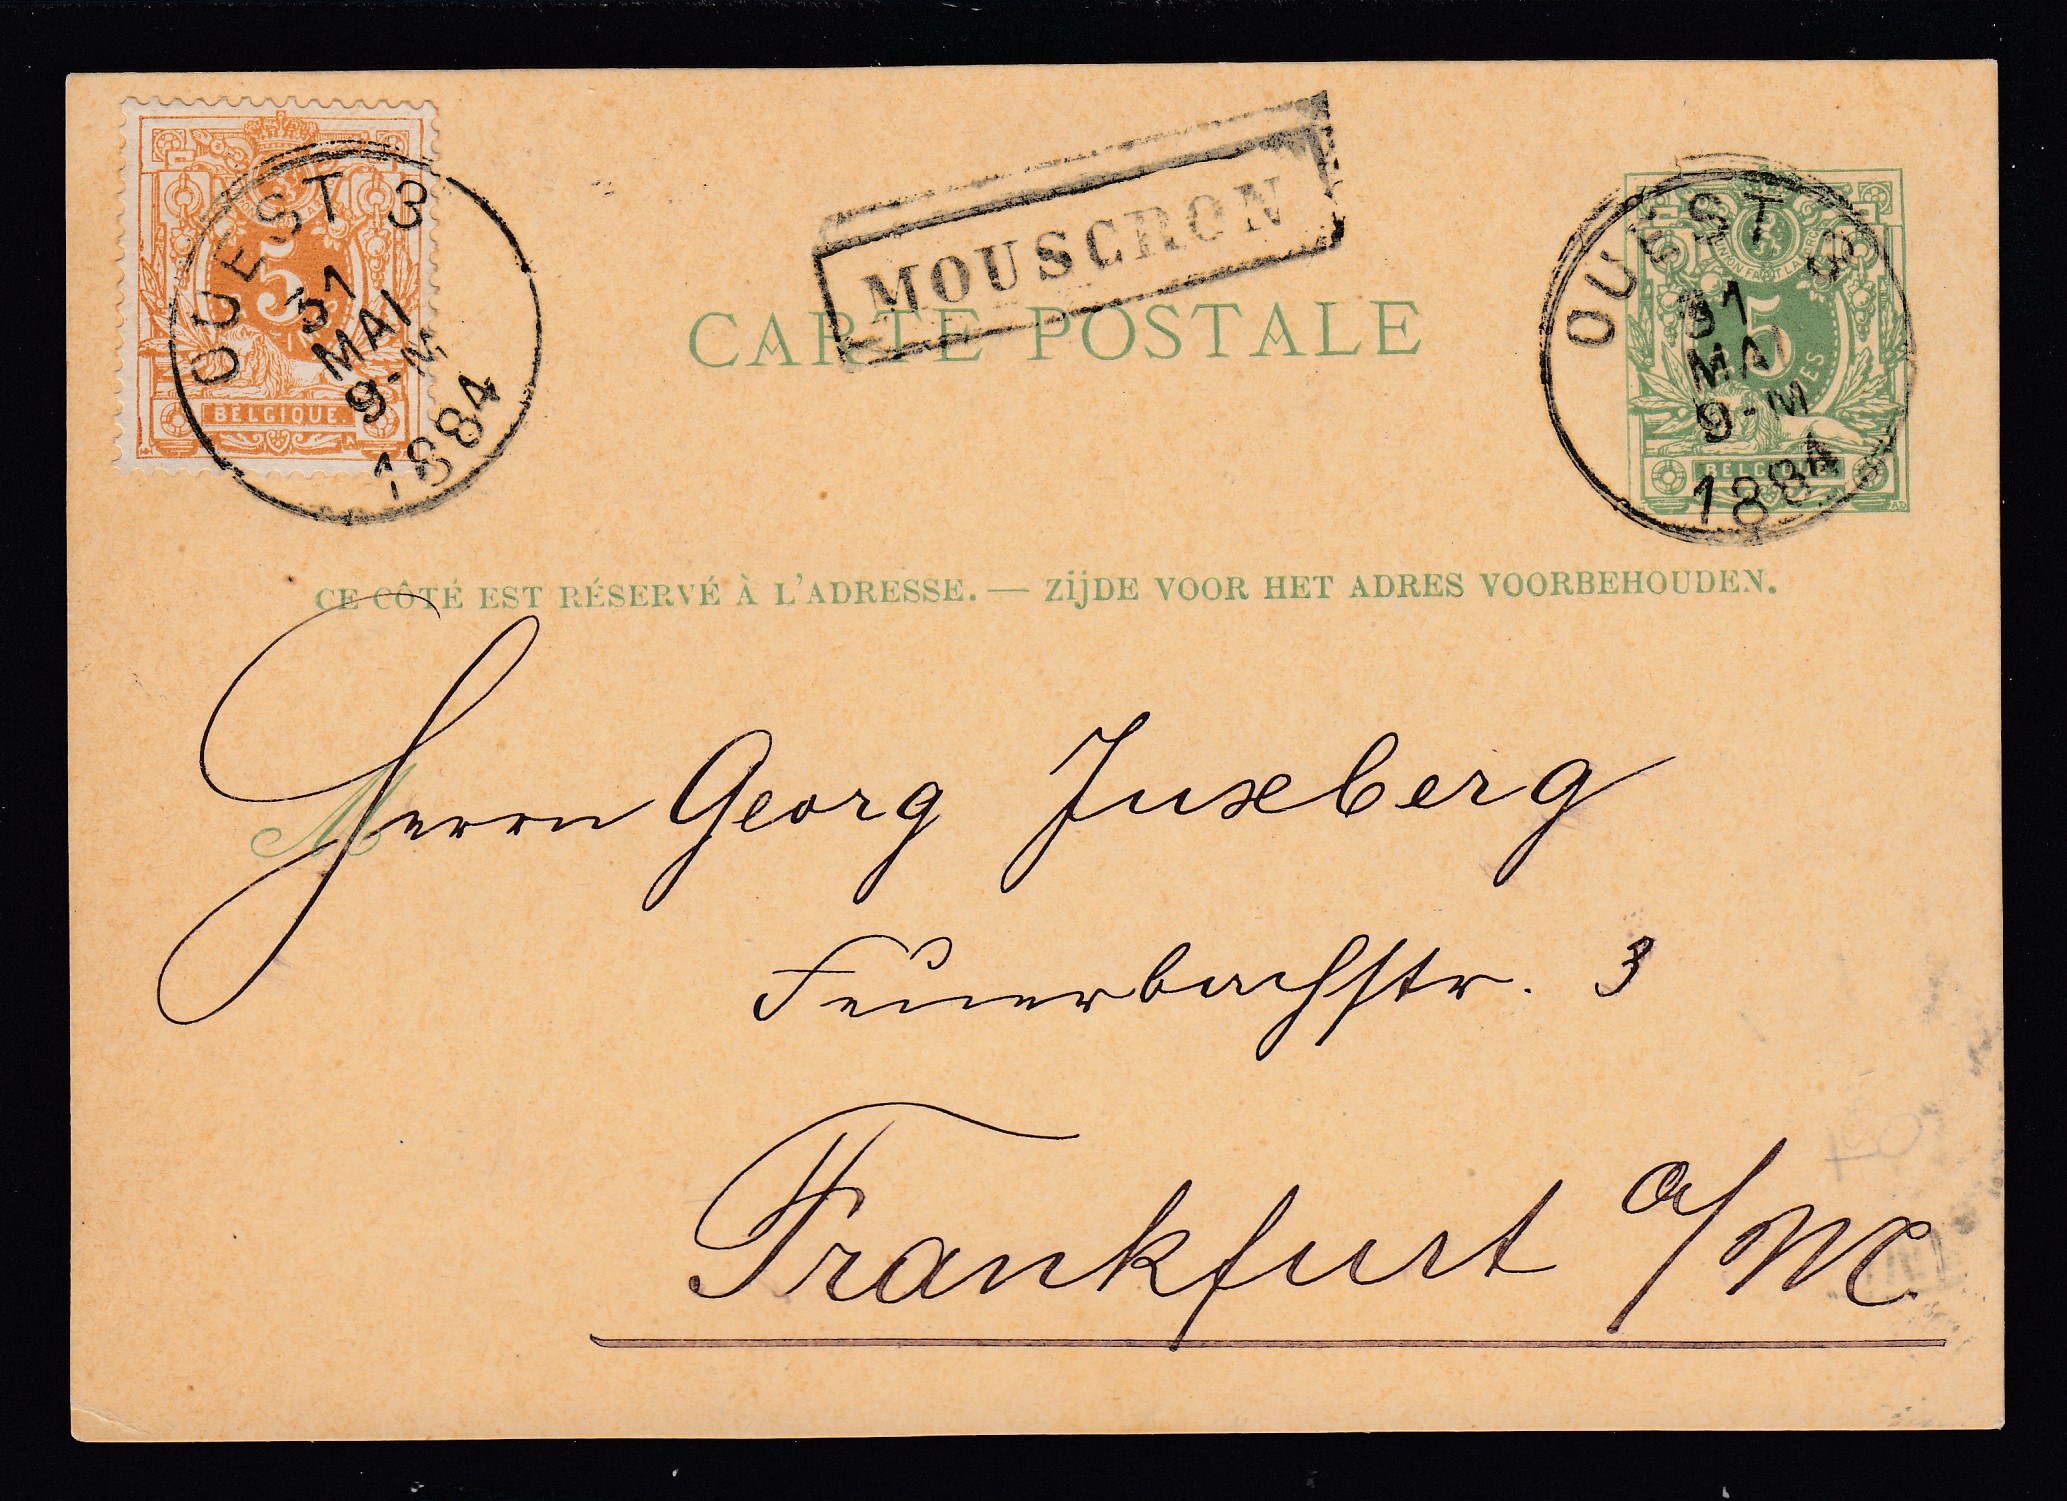 OUEST 3
31
MAI
9-M
1884
5
BELGIQUE
MOUSCRON
CARTE POSTALE
OUEST 3
31
MAI
9-M
1884
5
BELGIQUE
CE CÔTÉ EST RÉSERVÉ À L'ADRESSE. — ZijDE VOOR HET ADRES VOORBEHOUDEN.
M
Herrn Georg Juxberg
Feuerbachstr. 3
Frankfurt a/M.